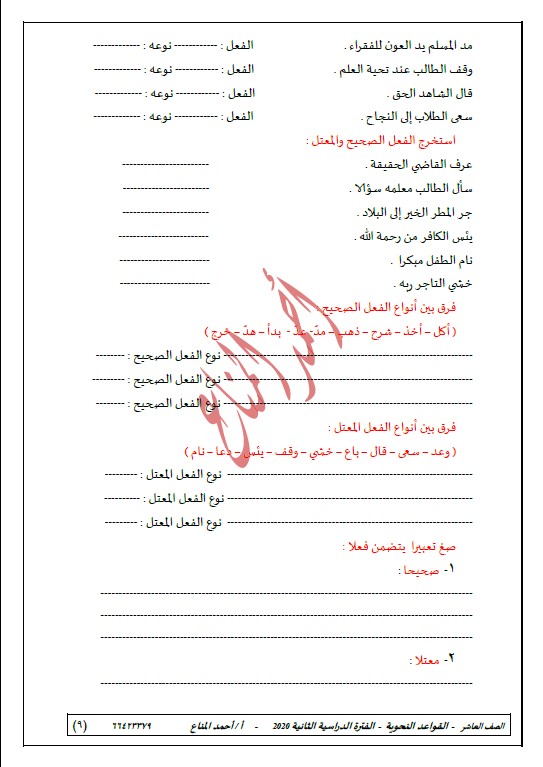 مد المسلم يد العون للفقراء . الفعل : ------------ نوعه : -------------
وقف الطالب عند تحية العلم . الفعل : ------------ نوعه : -------------
قال الشاهد الحق . الفعل : ------------ نوعه : -------------
سعى الطلاب إلى النجاح . الفعل : ------------ نوعه : -------------
استخرج الفعل الصحيح والمعتل :
عرف القاضي الحقيقة . ------------------------
سأل الطالب معلمه سؤالا . ------------------------
جر المطر الخير إلى البلاد . ------------------------
يئس الكافر من رحمة الله . -------------------------
نام الطفل مبكرا . -------------------------
خشي التاجر ربه . -------------------------
فرق بين أنواع الفعل الصحيح :
( أكل – أخذ – شرح – ذهب – مدّ- عدّ - بدأ – هدّ – خرج )
---------------------------------------------------------------------- نوع الفعل الصحيح : --------
---------------------------------------------------------------------- نوع الفعل الصحيح : ---------
---------------------------------------------------------------------- نوع الفعل الصحيح : --------
فرق بين أنواع الفعل المعتل :
( وعد – سعى – قال – باع – خشي – وقف – يئس – دعا – نام )
-------------------------------------------------------------------- نوع الفعل المعتل : ---------
-------------------------------------------------------------------- نوع الفعل المعتل : ----------
-------------------------------------------------------------------- نوع الفعل المعتل : ---------
صغ تعبيرا يتضمن فعلا :
١- صحيحا :
--------------------------------------------------------------------------------------------------------
--------------------------------------------------------------------------------------------------------
--------------------------------------------------------------------------------------------------------
٢- معتلا :
--------------------------------------------------------------------------------------------------------
أحمد المناع
الصف العاشر - القواعد النحوية - الفترة الدراسية الثانية 2020 - أ / أحمد المناع ٦٦٤٢٣٣٧٩ (٩)